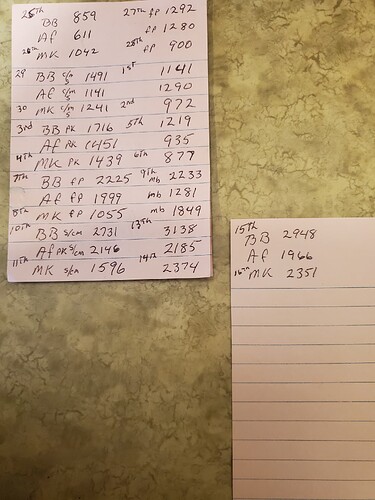 25th BB 859 27th fp 1292
Af 611 fp 1280
26th MK 1042 28th fp 900
29 BB c/m s 1491 1st 1141
Af c/m s 1141 1290
30 MK c/m s 1241 2nd 972
3rd BB PK 1716 5th 1219
Af PK 1451 935
4th MK PK 1439 6th 877
7th BB fp 2225 9th mb 2233
Af fp 1999 mb 1281
8th MK fp 1055 mb 1849
10th BB s/cm 2731 13th 3138
Af PK s/cm 2146 2185
11th MK s/cm 1596 14th 2374
15th
BB 2948
Af 1966
16th MK 2351